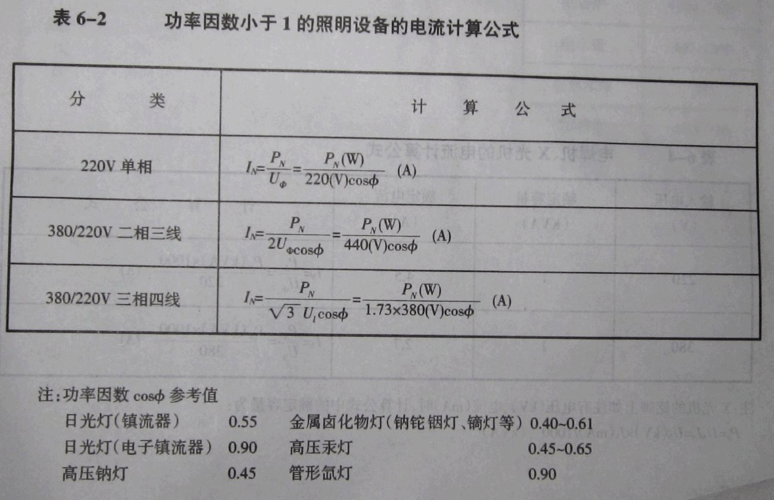 表 6-2 功率因数小于 1 的照明设备的电流计算公式
分 类 计 算 公 式
220V 单相 I_N=P_N/U_Φ=P_N(W)/220(V)cosϕ (A)
380/220V 二相三线 I_N=P_N/2U_Φcosϕ=P_N(W)/440(V)cosϕ (A)
380/220V 三相四线 I_N=P_N/√3 U_l cosϕ=P_N(W)/1.73×380(V)cosϕ (A)
注:功率因数 cosϕ 参考值
日光灯(镇流器) 0.55 金属卤化物灯(钠铊铟灯、镝灯等) 0.40~0.61
日光灯(电子镇流器) 0.90 高压汞灯 0.45~0.65
高压钠灯 0.45 管形氙灯 0.90